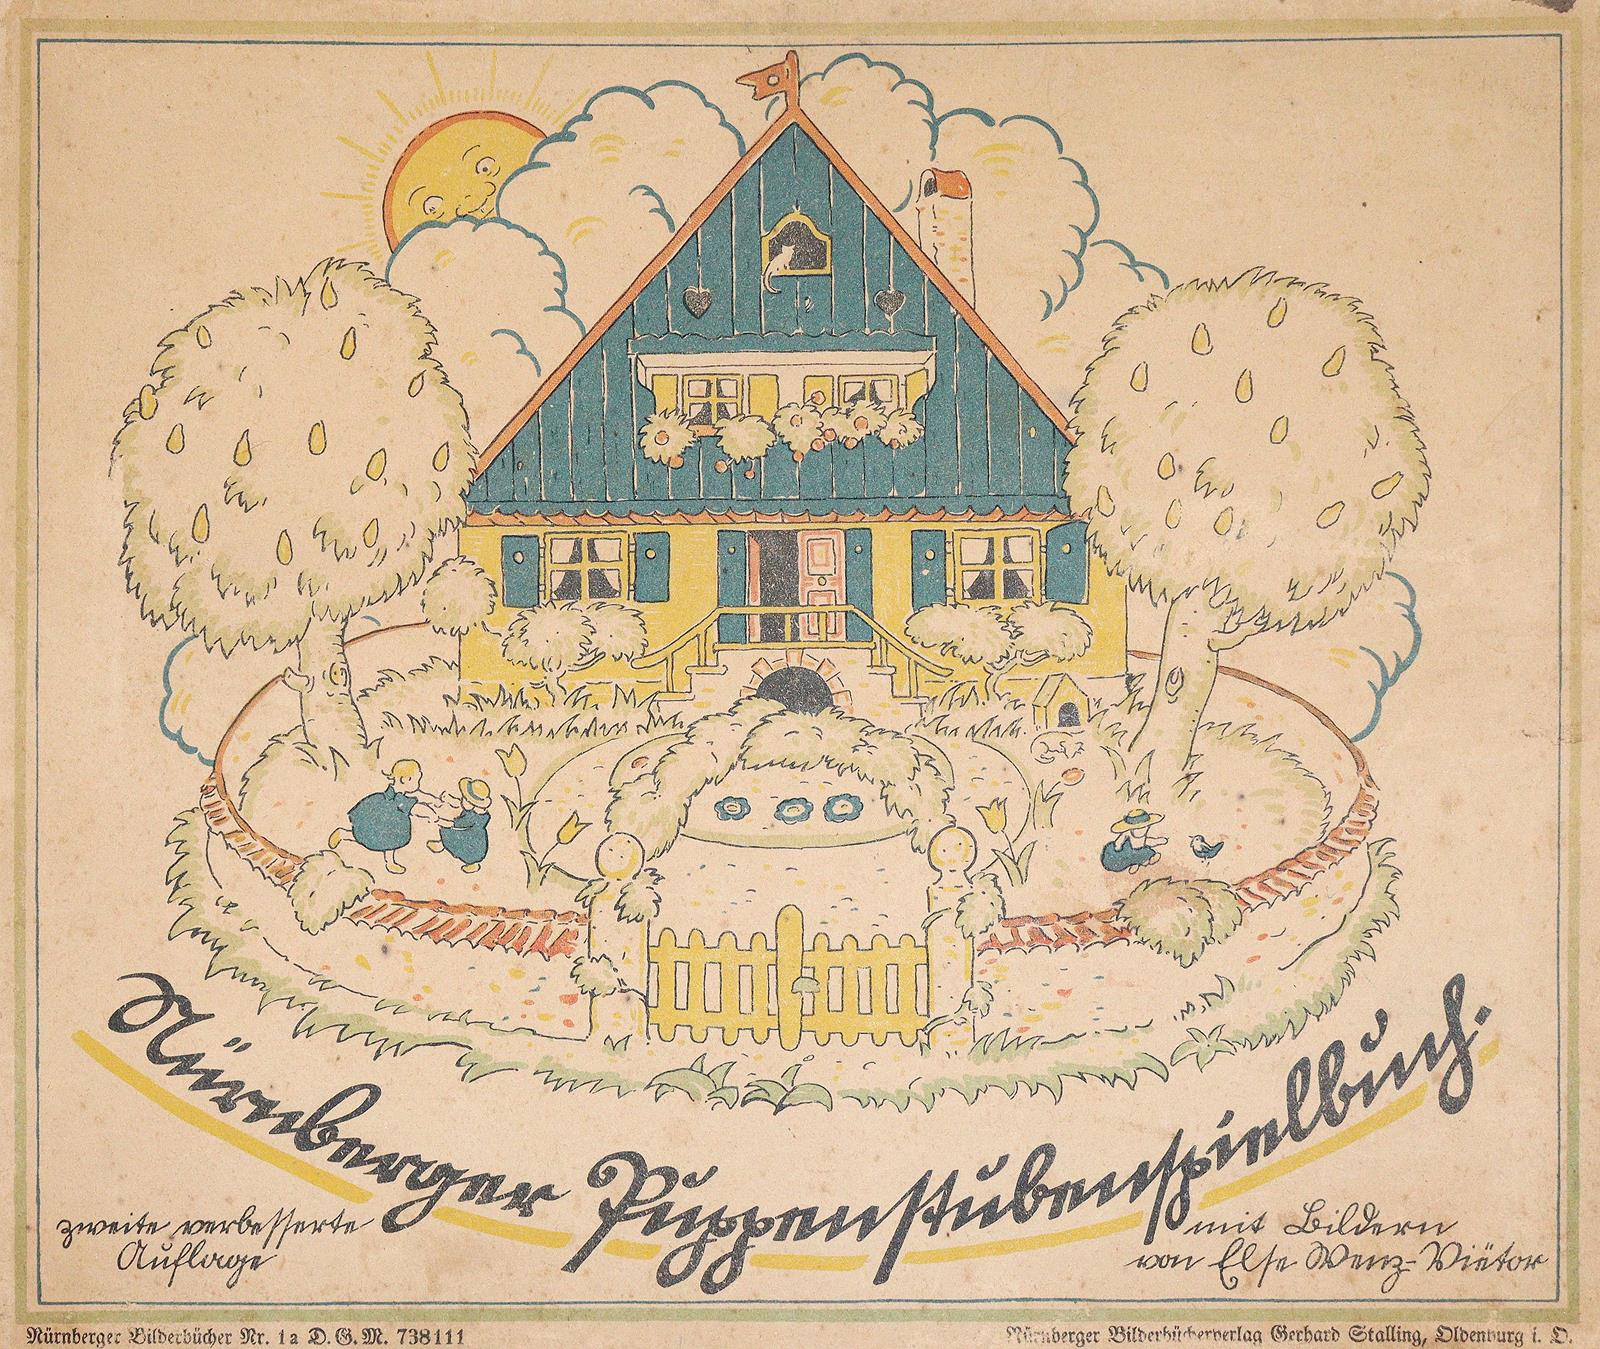 Nürnberger Puppenstubenspielbuch.
zweite verbesserte
Auflage
mit Bildern
von Else Wenz-Viëtor
Nürnberger Bilderbücher Nr. 1a D.G.M. 738111
Nürnberger Bilderbücherverlag Gerhard Stalling, Oldenburg i. O.